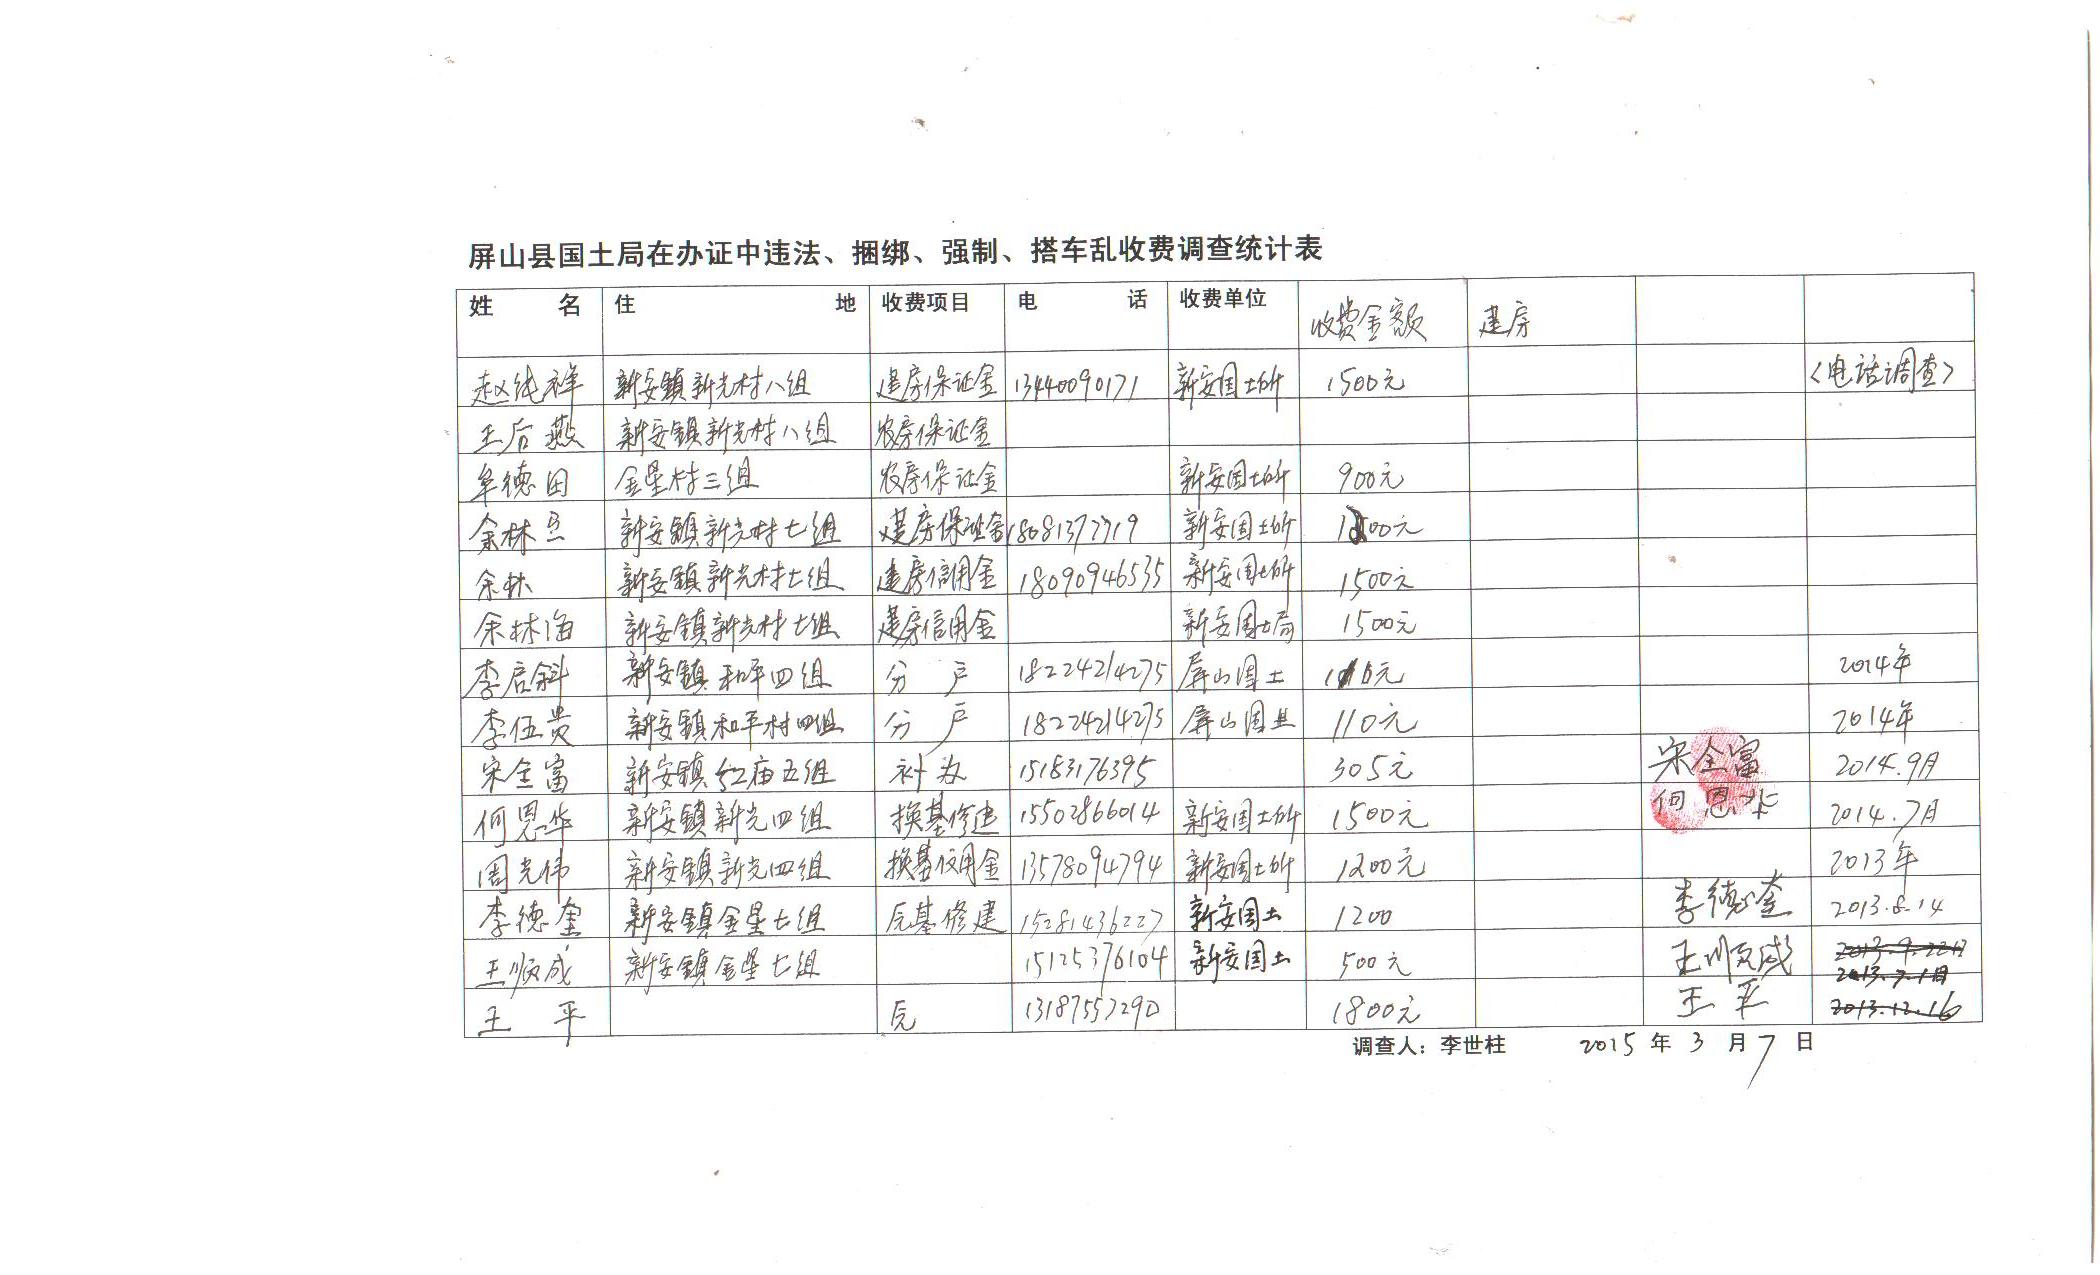 屏山县国土局在办证中违法、捆绑、强制、搭车乱收费调查统计表
姓 名 住 地 收费项目 电 话 收费单位 收费金额 建房
赵纯祥 新安镇新光村八组 建房保证金 13440090171 新安国土所 1500元 <电话调查>
王后燕 新安镇新光村八组 农房保证金
牟德田 金星村三组 农房保证金 新安国土所 900元
余林 新安镇新光村七组 建房保证金 新安国土所
余林 新安镇新光村七组 建房信用金 18090946535 新安国土所 1500元
余林海 新安镇新光村七组 建房信用金 新安国土局 1500元
李启斜 新安镇和平四组 分 户 18224214275 屏山国土 2014年
李伍贵 新安镇和平村四组 分 户 18224214275 屏山国土 110元 2014年
宋全富 新安镇红庙五组 补办 15183176395 305元 宋全富 2014.9月
何恩华 新安镇新光四组 换基修建 15502866014 新安国土所 1500元 何恩华 2014.7月
周光伟 新安镇新光四组 换基信用金 13578094794 新安国土所 1200元 2013年
李德奎 新安镇金星七组 基修建 15281436227 新安国土 1200 李德奎 2013.8.14
王顺成 新安镇金星七组 15125376104 新安国土 500元 王顺成 2013.7.1日
王 平 13187557290 1800元 王平 2013.12.16
调查人：李世柱 2015年3月7日